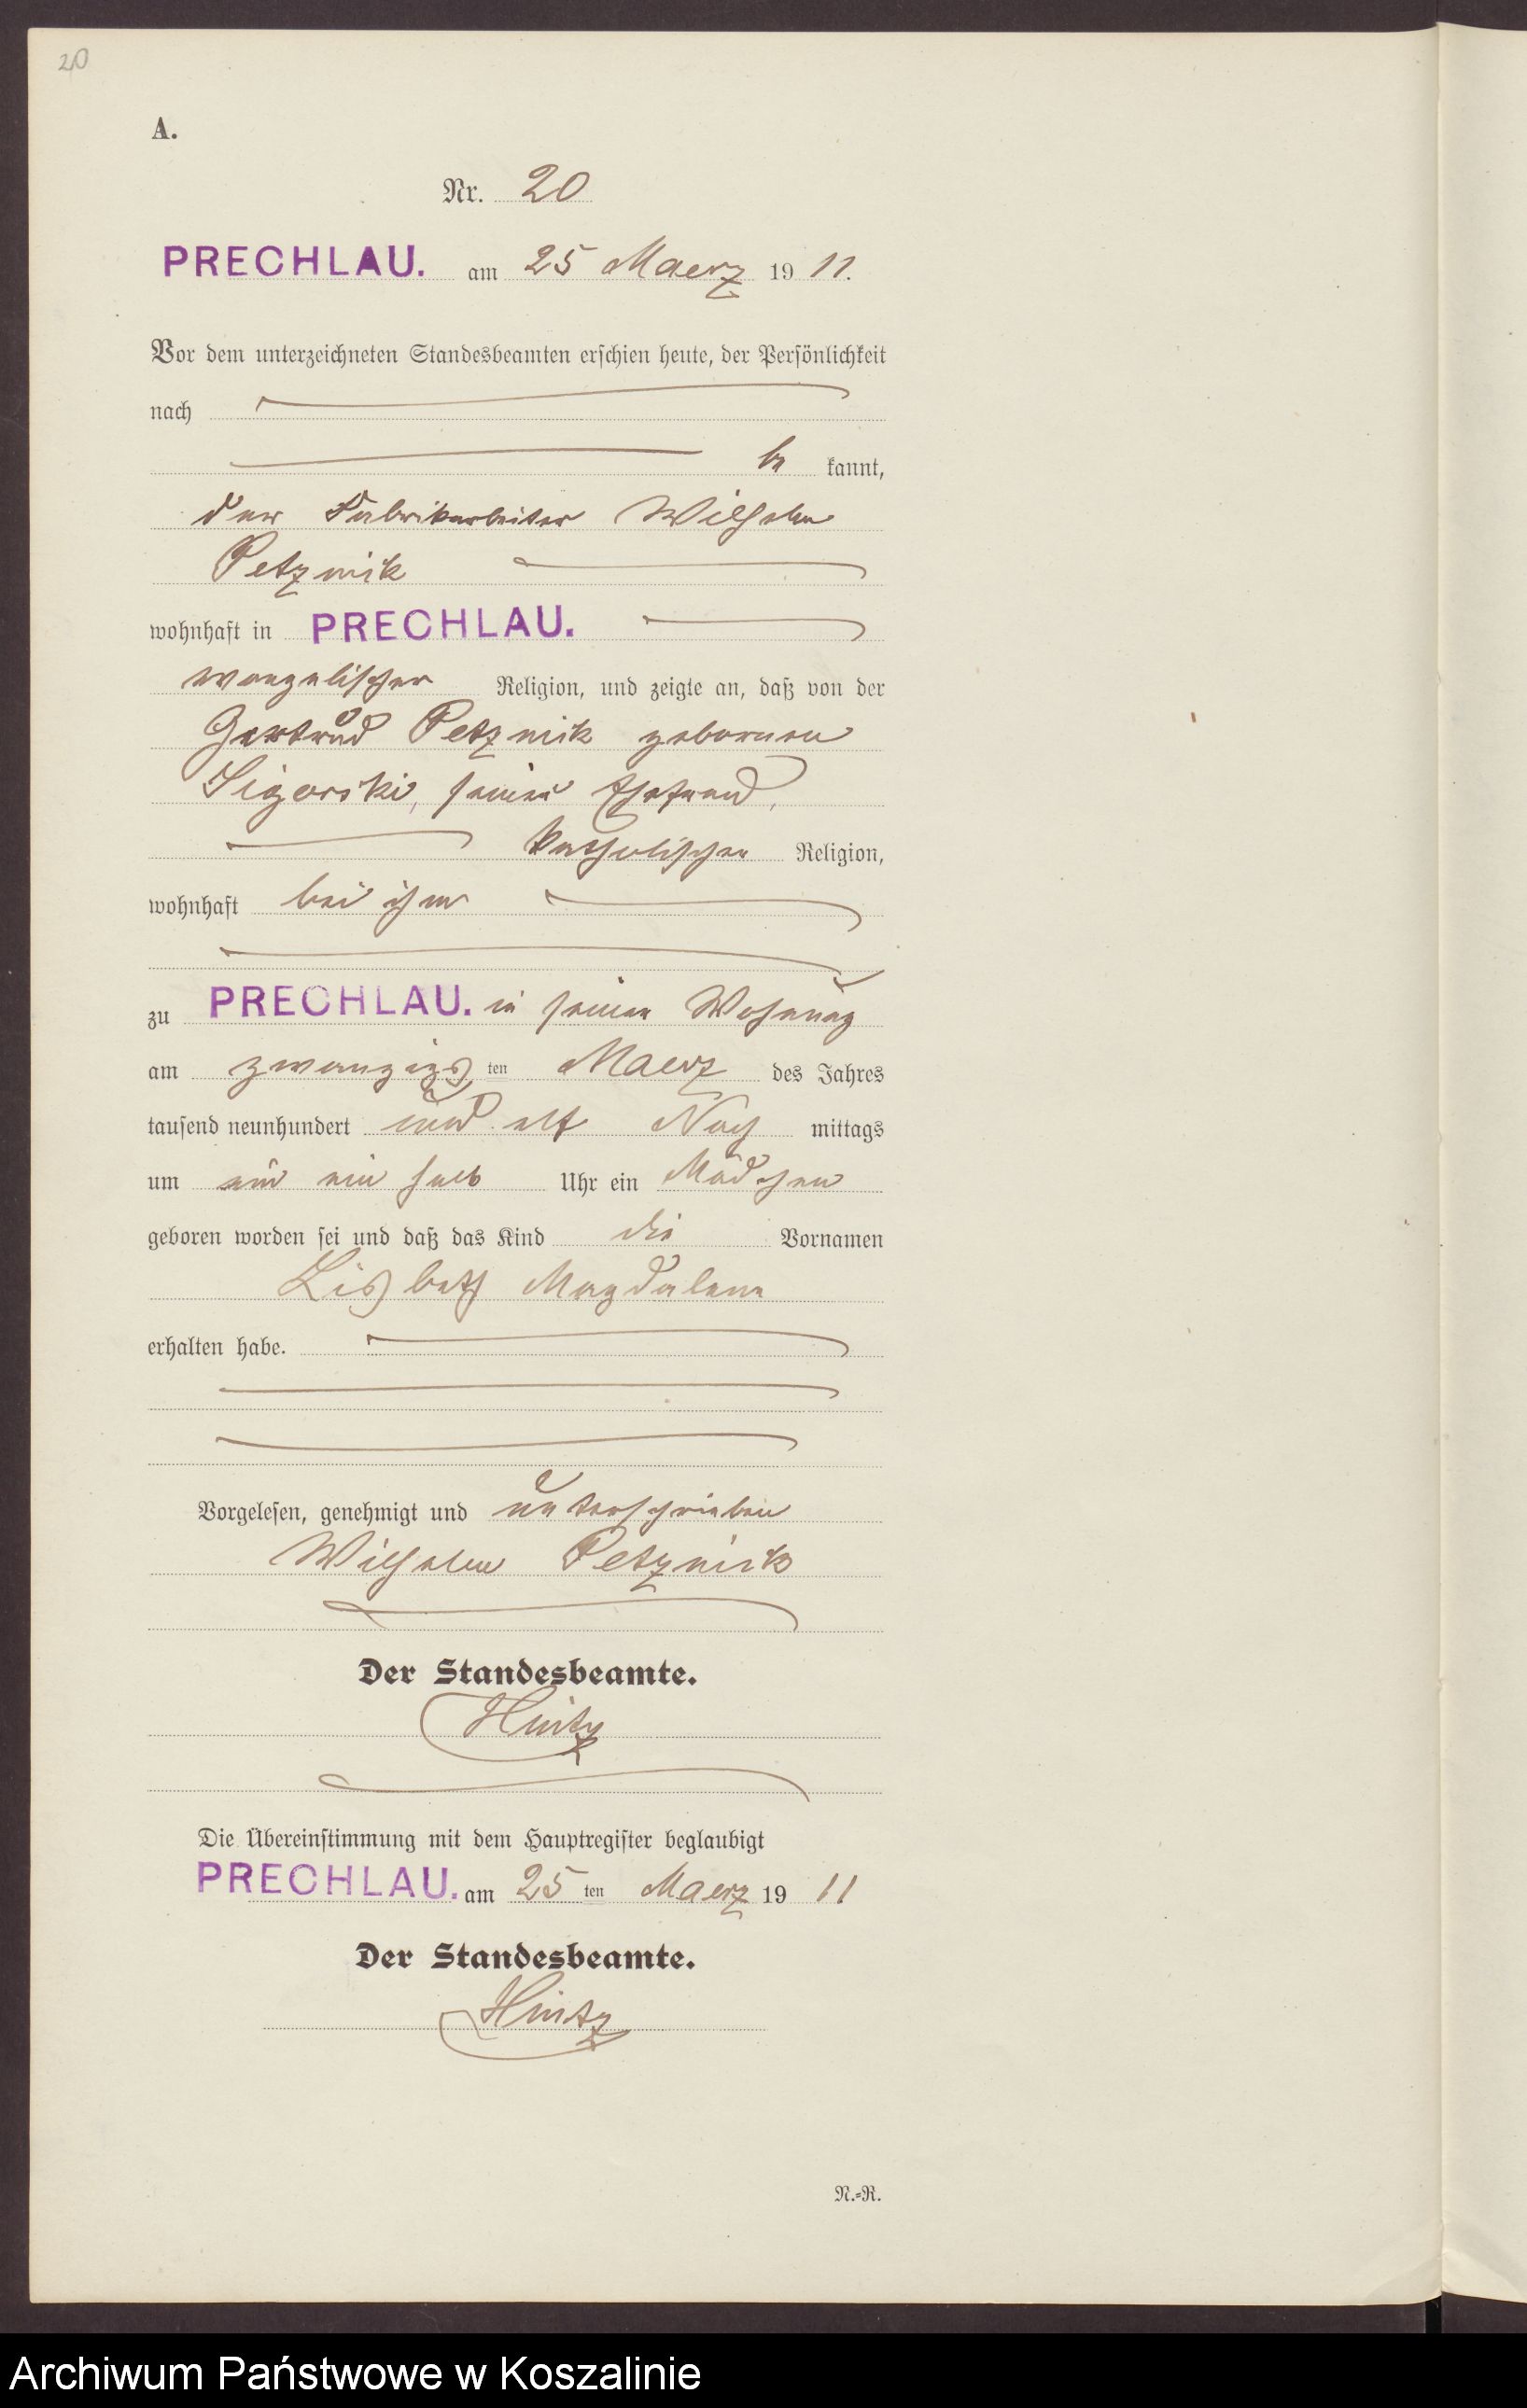 20
A.
Nr. 20
PRECHLAU. am 25 Maerz 1911.
Vor dem unterzeichneten Standesbeamten erschien heute, der Persönlichkeit
nach
be kannt,
der Fabrikarbeiter Wilhelm
Petznik
wohnhaft in PRECHLAU.
evangelischer Religion, und zeigte an, daß von der
Gertrud Petznik geborenen
Sigorski, seiner Ehefrau,
katholischer Religion,
wohnhaft bei ihm
zu PRECHLAU. in seiner Wohnung
am zwanzigs ten Maerz des Jahres
tausend neunhundert und elf Nach mittags
um ein ein halb Uhr ein Mädchen
geboren worden sei und daß das Kind die Vornamen
Lisbeth Magdalena
erhalten habe.
Vorgelesen, genehmigt und unterschrieben
Wilhelm Petznick
Der Standesbeamte.
Hintz
Die Übereinstimmung mit dem Hauptregister beglaubigt
PRECHLAU. am 25 ten Maerz 1911
Der Standesbeamte.
Hintz
N.=R.
Archiwum Państwowe w Koszalinie